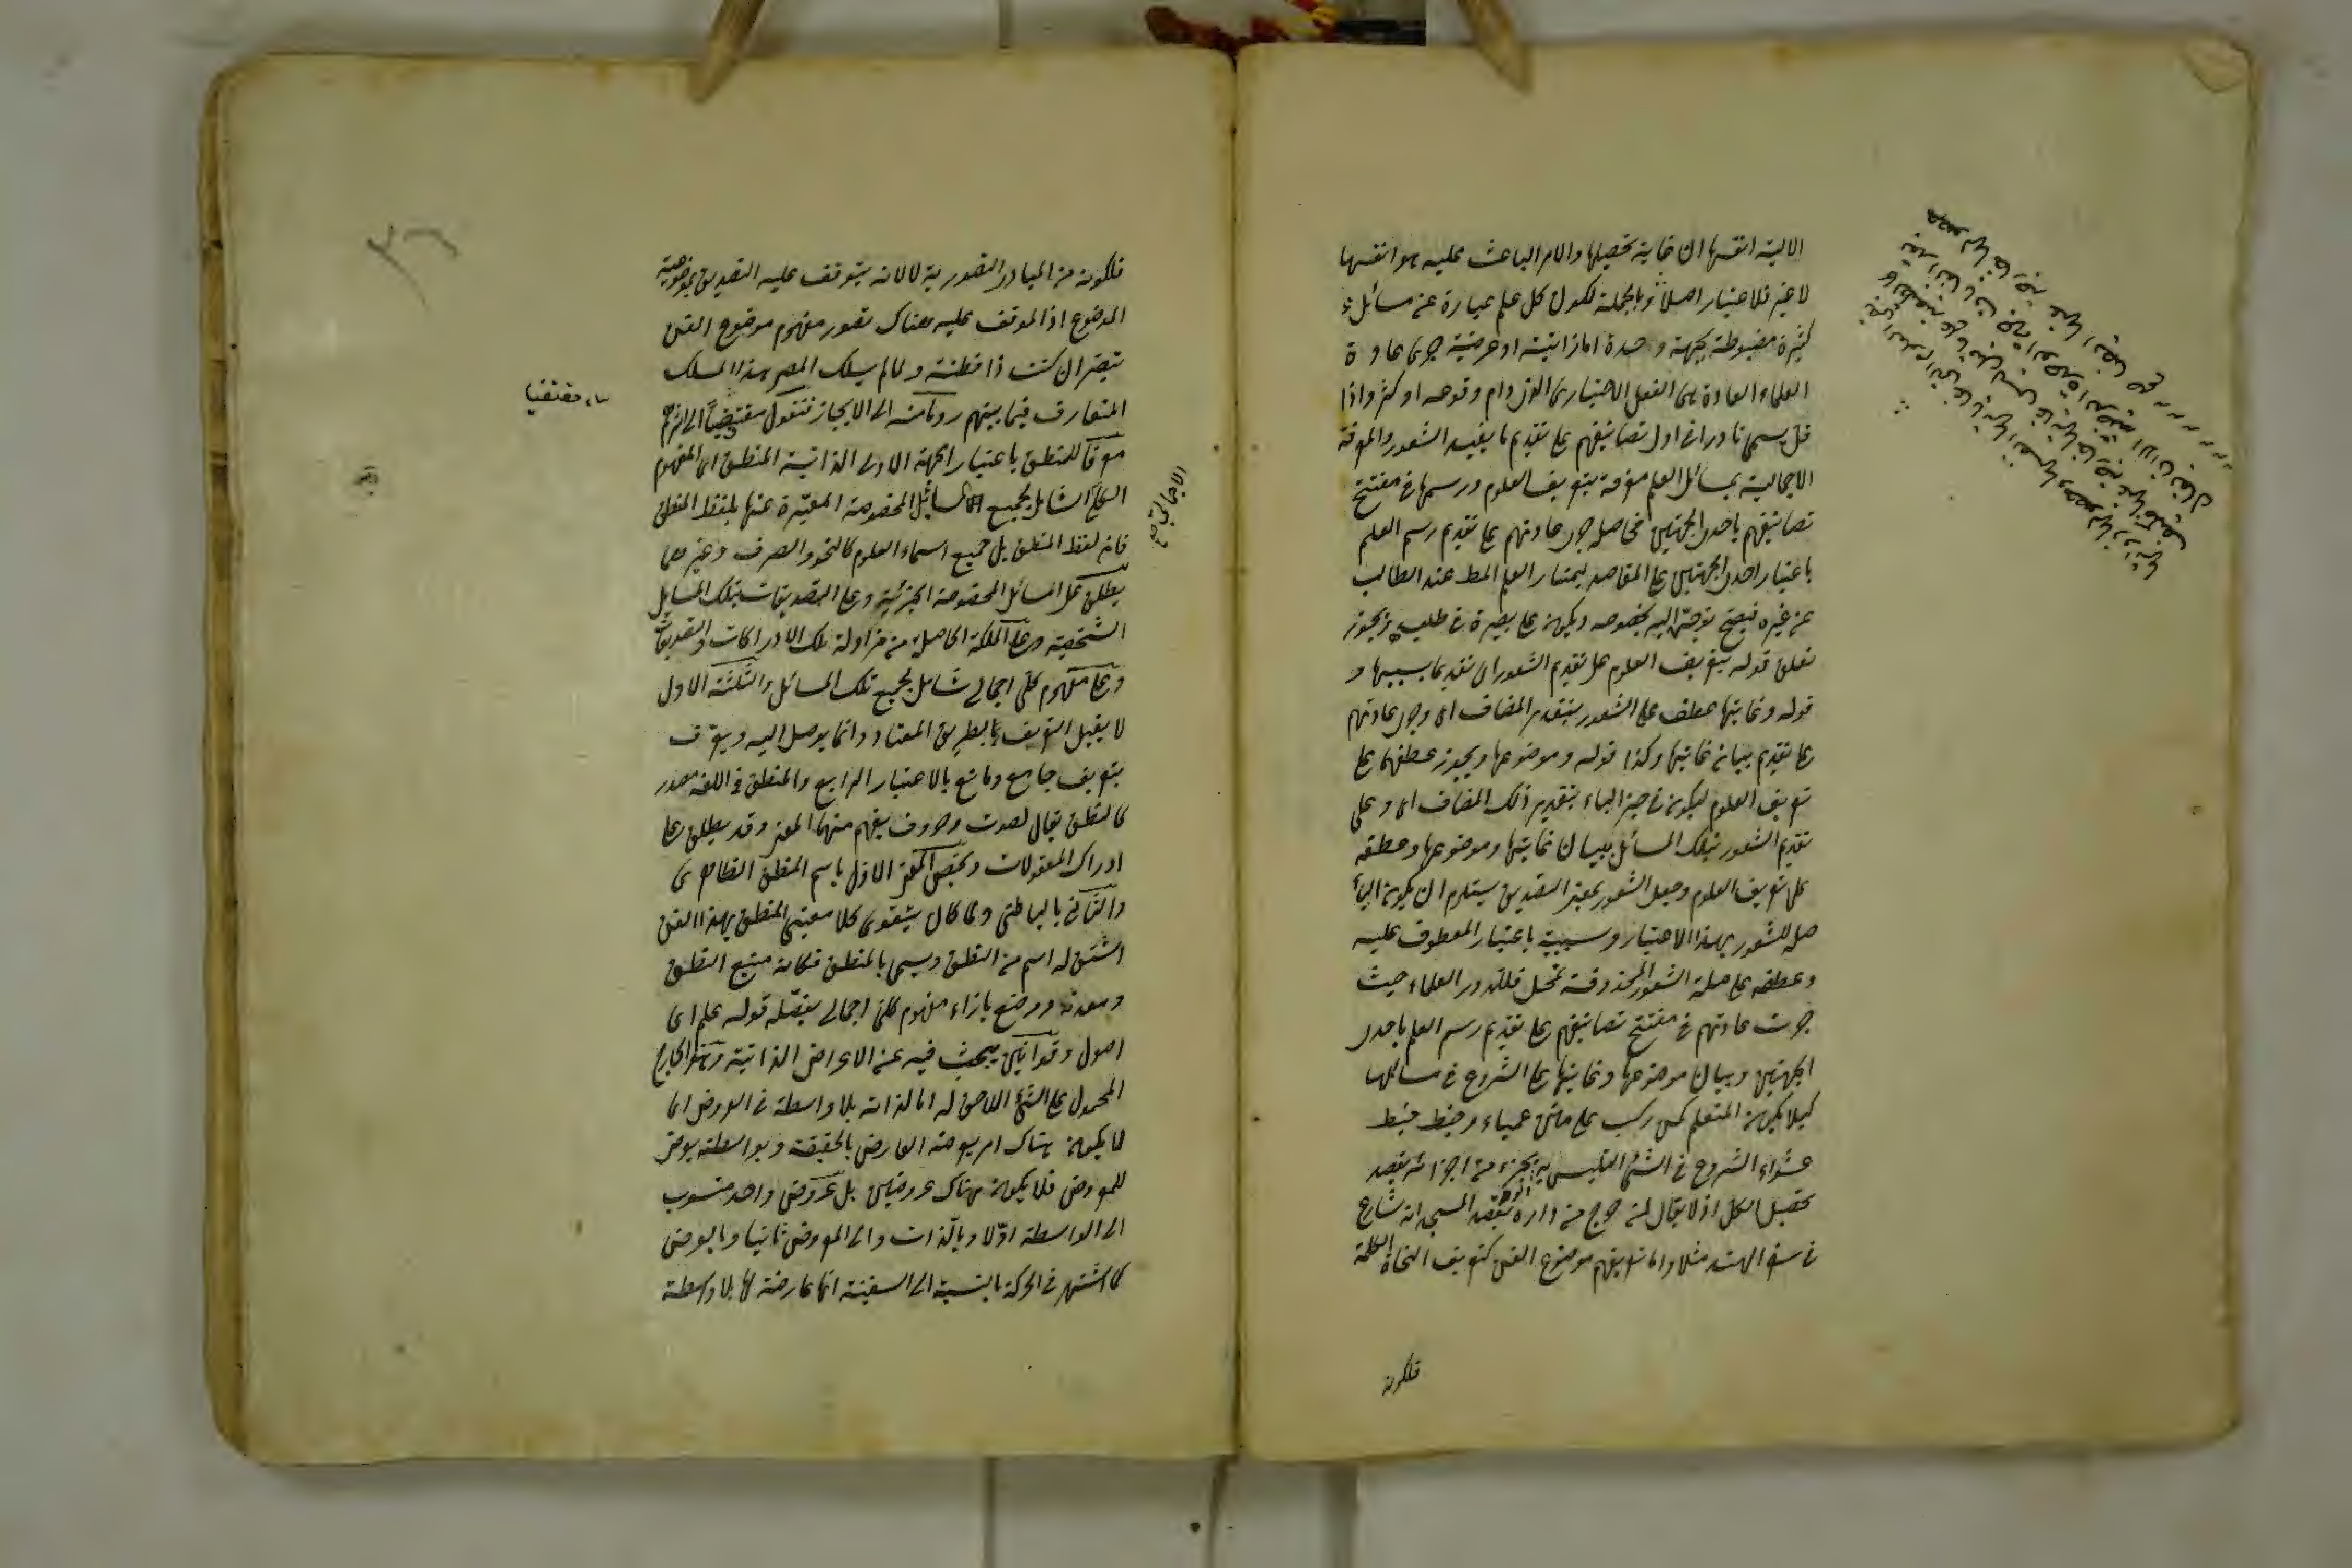 الالية انفسها ان غاية تحصيلها والامر الباعث عليه هو انفسها
لا غير فلا اعتبار اصلا وبالجملة لكون كل علم عبارة عن مسائل
كثيرة مضبوطة بجهة وحدة اما ذاتية او عرضية جرى عادة
العلماء والعادة هى الفعل الاختيارى الذى دام وقوعه او كثر واذا
قل يسمى نادرا فى اول تصانيفهم على تقديم ما يفيد الشعور والمعرفة
الاجمالية بمسائل العلم معرفة بتعريف العلوم ورسمها فى مفتتح
تصانيفهم باحدى الجهتين فحاصله جرى عادتهم على تقديم رسم العلم
باعتبار احدى الجهتين على المقاصد ليمتاز العلم المط عند الطالب
عن غيره فيصح توجهه اليه بخصوصه ويكون على بصيرة فى طلبه ويجوز
تعلق قوله بتعريف العلوم على تقديم الشعور اى تقديما بسببها و
قوله وغايتها عطف على الشعور بتقدير المضاف اى وجرى عادتهم
على تقديم بيان غايتها وكذا قوله وموضوعها ويجوز عطفهما على
تعريف العلوم ليكون فى حيز الباء بتقدير ذلك المضاف اى وعلى
تقديم الشعور بتلك المسائل ببيان غايتها وموضوعها وعطفه
على تعريف العلوم وجعل الشعور بمعنى التصديق يستلزم ان يكون الباء
صلة للشعور بهذا الاعتبار وسببية باعتبار المعطوف عليه
وعطفه على صلة الشعور المحذوفة تمحل فلله در العلماء حيث
جرت عادتهم فى مفتتح تصانيفهم على تقديم رسم العلم باحدى
الجهتين وبيان موضوعها وغايتها على الشروع فى مسائلها
كيلا يكون المتعلم كمن ركب على متن عمياء وخبط خبط
عشواء الشروع فى الشئ التلبس به بجزء من اجزائه بقصد
تحصيل الكل اذ لا يقال لمن خرج من داره بقصد المسجد انه شارع
فى سفر الهند مثلا واما تعريفهم موضوع الفن كتعريف النحاة الكلمة
فلكونه
فلكونه من المبادى التصورية لا لانه يتوقف عليه التصديق بموضوعية
الموضوع اذ الموقف عليه هناك تصور مفهوم موضوع الفن
تبصر ان كنت ذا فطنة ولما لم يسلك المصر هذا المسلك
المتعارف فيما بينهم روما منه الى الايجاز فنقول مقتضيا الى شرح
معرفا للمنطق باعتبار الجهة الاولى الذاتية المنطق اى المفهوم
الكلى الشامل لجميع المسائل المخصوصة المعبرة عنها بلفظ المنطق
فان لفظ المنطق بل جميع اسماء العلوم كالنحو والصرف وغيرهما
يطلق على المسائل المخصوصة الجزئية وعلى التصديقات بتلك المسايل
الشخصية وعلى الملكة الحاصلة من مزاولة تلك الادراكات والتصديقات
وعلى مفهوم كلى اجمالى شامل لجميع تلك المسائل والثلثة الاول
لا يقبل التعريف بالطريق المعتاد وانما يوصل اليه ويعرف
بتعريف جامع ومانع بالاعتبار الرابع والمنطق فى اللغة مصدر
كالنطق يقال لصوت وحروف يفهم منها المعنى وقد يطلق على
ادراك المعقولات ويختص المعنى الاول باسم المنطق الظاهرى
والثانى بالباطنى ولما كان يتقوى كلا معنيى المنطق بهذا الفن
اشتق له اسم من النطق ويسمى بالمنطق فكانه منبع النطق
ومعدنه ووضع بازاء مفهوم كلى اجمالى يفصله قوله علم اى
اصول وقوانين يبحث فيه عن الاعراض الذاتية الخارج
المحمول على الشئ اللاحق له اما لذاته بلا واسطة فى العروض اى
لا يكون هناك امر يعرضه العارض بالحقيقة وبواسطته يعرض
للمعروض فلا يكون هناك عروضين بل عروض واحد منسوب
الى الواسطة اولا وبالذات والى المعروض ثانيا وبالعرض
كما اشتهر فى الحركة بالنسبة الى السفينة انها عارضة لها بلا واسطة
الاجمالى صح
مقتفيا
٣٦